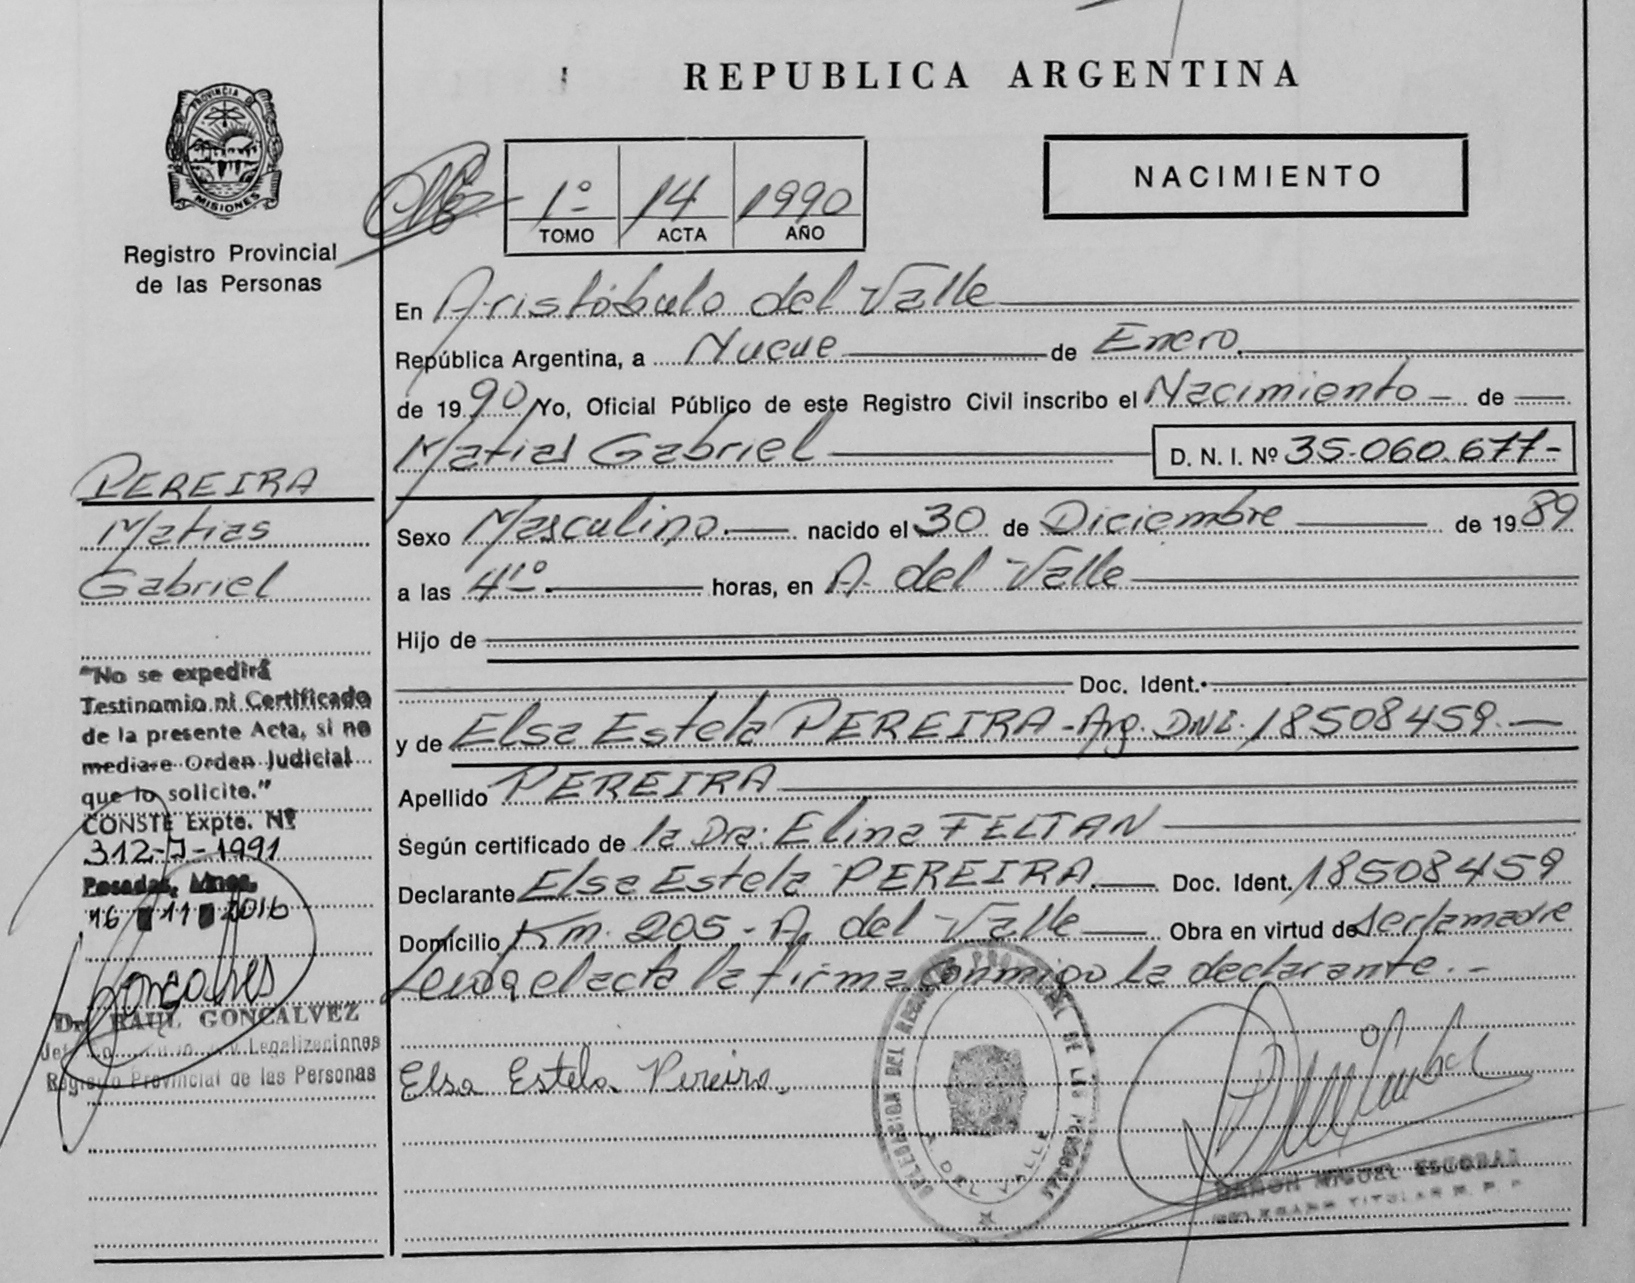 REPUBLICA ARGENTINA
PROVINCIA DE
MISIONES
Registro Provincial
de las Personas
1º 14 1990
TOMO ACTA AÑO
NACIMIENTO
En Aristóbulo del Valle
República Argentina, a Nueve de Enero
de 1990 Yo, Oficial Público de este Registro Civil inscribo el Nacimiento de
Matias Gabriel D. N. I. Nº 35.060.677-
Sexo Masculino.- nacido el 30 de Diciembre de 1989
a las 4'º.- horas, en A. del Valle
Hijo de
Doc. Ident.
y de Elsa Estela PEREIRA - Arg. DNI. 18508459.-
Apellido PEREIRA
Según certificado de la Dra: Elina FELTAN
Declarante Elsa Estela PEREIRA.- Doc. Ident. 18508459
Domicilio Km. 205 - A. del Valle Obra en virtud de ser la madre
Leída el acta la firma conmigo la declarante.-
Elsa Estela Pereira
DELEGACION DEL REGISTRO PROVINCIAL DE LAS PERSONAS
A. DEL VALLE
RAMON MIGUEL ESCOBAR
DELEGADO TITULAR R. P. P.
PEREIRA
Matias
Gabriel
"No se expedirá
Testinomio ni Certificado
de la presente Acta, si no
mediare Orden Judicial
que lo solicite."
CONSTE Expte. Nº
312-7-1991
Posadas, Mnes.
16 11 2016
Goncalves
Dr. RAUL GONCALVEZ
Legalizaciones
Registro Provincial de las Personas